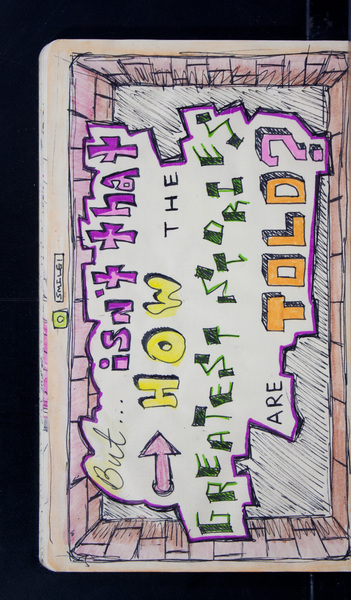 SMILE!
But... isn't that
HOW THE
GREATEST STORIES
ARE TOLD?